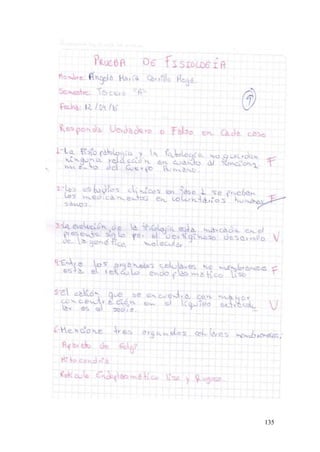 PRUEBA DE FISIOLOGÍA
Nombre: Angelo María Carrillo Moya.
Semestre: Tercero "A"
Fecha: 12/04/15
Responda Verdadero o Falso en Cada caso
1-La Fisiopatología y la Patología no guardan
ninguna relación en cuanto al funciona F
miento del cuerpo Humano.
2-los estudios clínicos en fase I se prueban
los medicamentos en voluntarios humanos F
sanos.
3-la evolución de la fisiología esta marcada en el
presente siglo por el vertiginoso desarrollo V
de la genética molecular.
4-Entre los organelos celulares no membranosos F
esta el retículo endoplasmático liso
5-El catión que se encuentra con mayor
concentración en el líquido extracelu V
lar es el sodio.
6-Mencione tres organelos celulares membranosos;
Aparato de Golgi
Mitocondria
Retículo Endoplasmático liso y Rugoso.
135